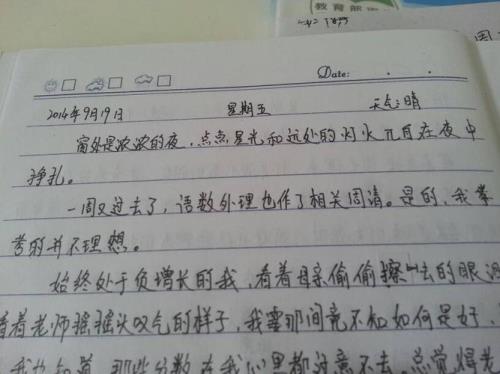 教育部
Date:
2014年9月19日 星期五 天气:晴
窗外是浓浓的夜,点点星光和远处的灯火兀自在夜中
挣扎。
一周又过去了,语数外理也作了相关周清。是的,我
考的并不理想。
始终处于负增长的我,看着母亲偷偷擦去的眼泪
看着老师摇摇头叹气的样子,我霎那间竟不知如何是好。
我也知道,那些分数在我心里都过意不去。总觉得